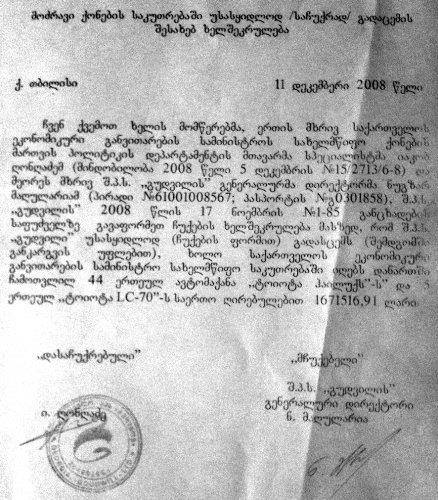 მოძრავი ქონების საკუთრებაში უსასყიდლოდ /საჩუქრად/ გადაცემის
შესახებ ხელშეკრულება
ქ. თბილისი
11 დეკემბერი 2008 წელი
ჩვენ ქვემოთ ხელის მომწერებმა, ერთის მხრივ საქართველოს
ეკონომიკური განვითარების სამინისტროს სახელმწიფო ქონების
მართვის პოლიტიკის დეპარტამენტის მთავარმა სპეციალისტმა იაკობ
ღონღაძემ (მინდობილობა 2008 წელი 5 დეკემბრის №15/2713/6-8) და
მეორეს მხრივ შ.პ.ს. „გუდვილის" გენერალურმა დირექტორმა ნუგზარ
მაღულარიამ (პირადი №61001008567; პასპორტის №ვ0301858), შ.პ.ს.
„გუდვილის" 2008 წლის 17 ნოემბრის №1-85 განცხადების
საფუძველზე გავაფორმეთ ჩუქების ხელშეკრულება მასზედ, რომ შ.პ.ს.
„გუდვილი" უსასყიდლოდ (ჩუქების ფორმით) გადასცემს (შემდგომში
განკარგვის უფლებით), ხოლო საქართველოს ეკონომიკური
განვითარების სამინისტრო სახელმწიფო საკუთრებაში იღებს დანართში
ჩამოთვლილ 44 ერთეულ ავტომაქანა „ტოიოტა ჰაილუქს"-ს და 5
ერთეულ „ტოიოტა LC-70"-ს საერთო ღირებულებით 1671516,91 ლარი
„დასაჩუქრებული"
„მჩუქებელი"
შ.პ.ს. „გუდვილის"
გენერალური დირექტორი
ი. ღონღაძე
ნ. მაღულარია